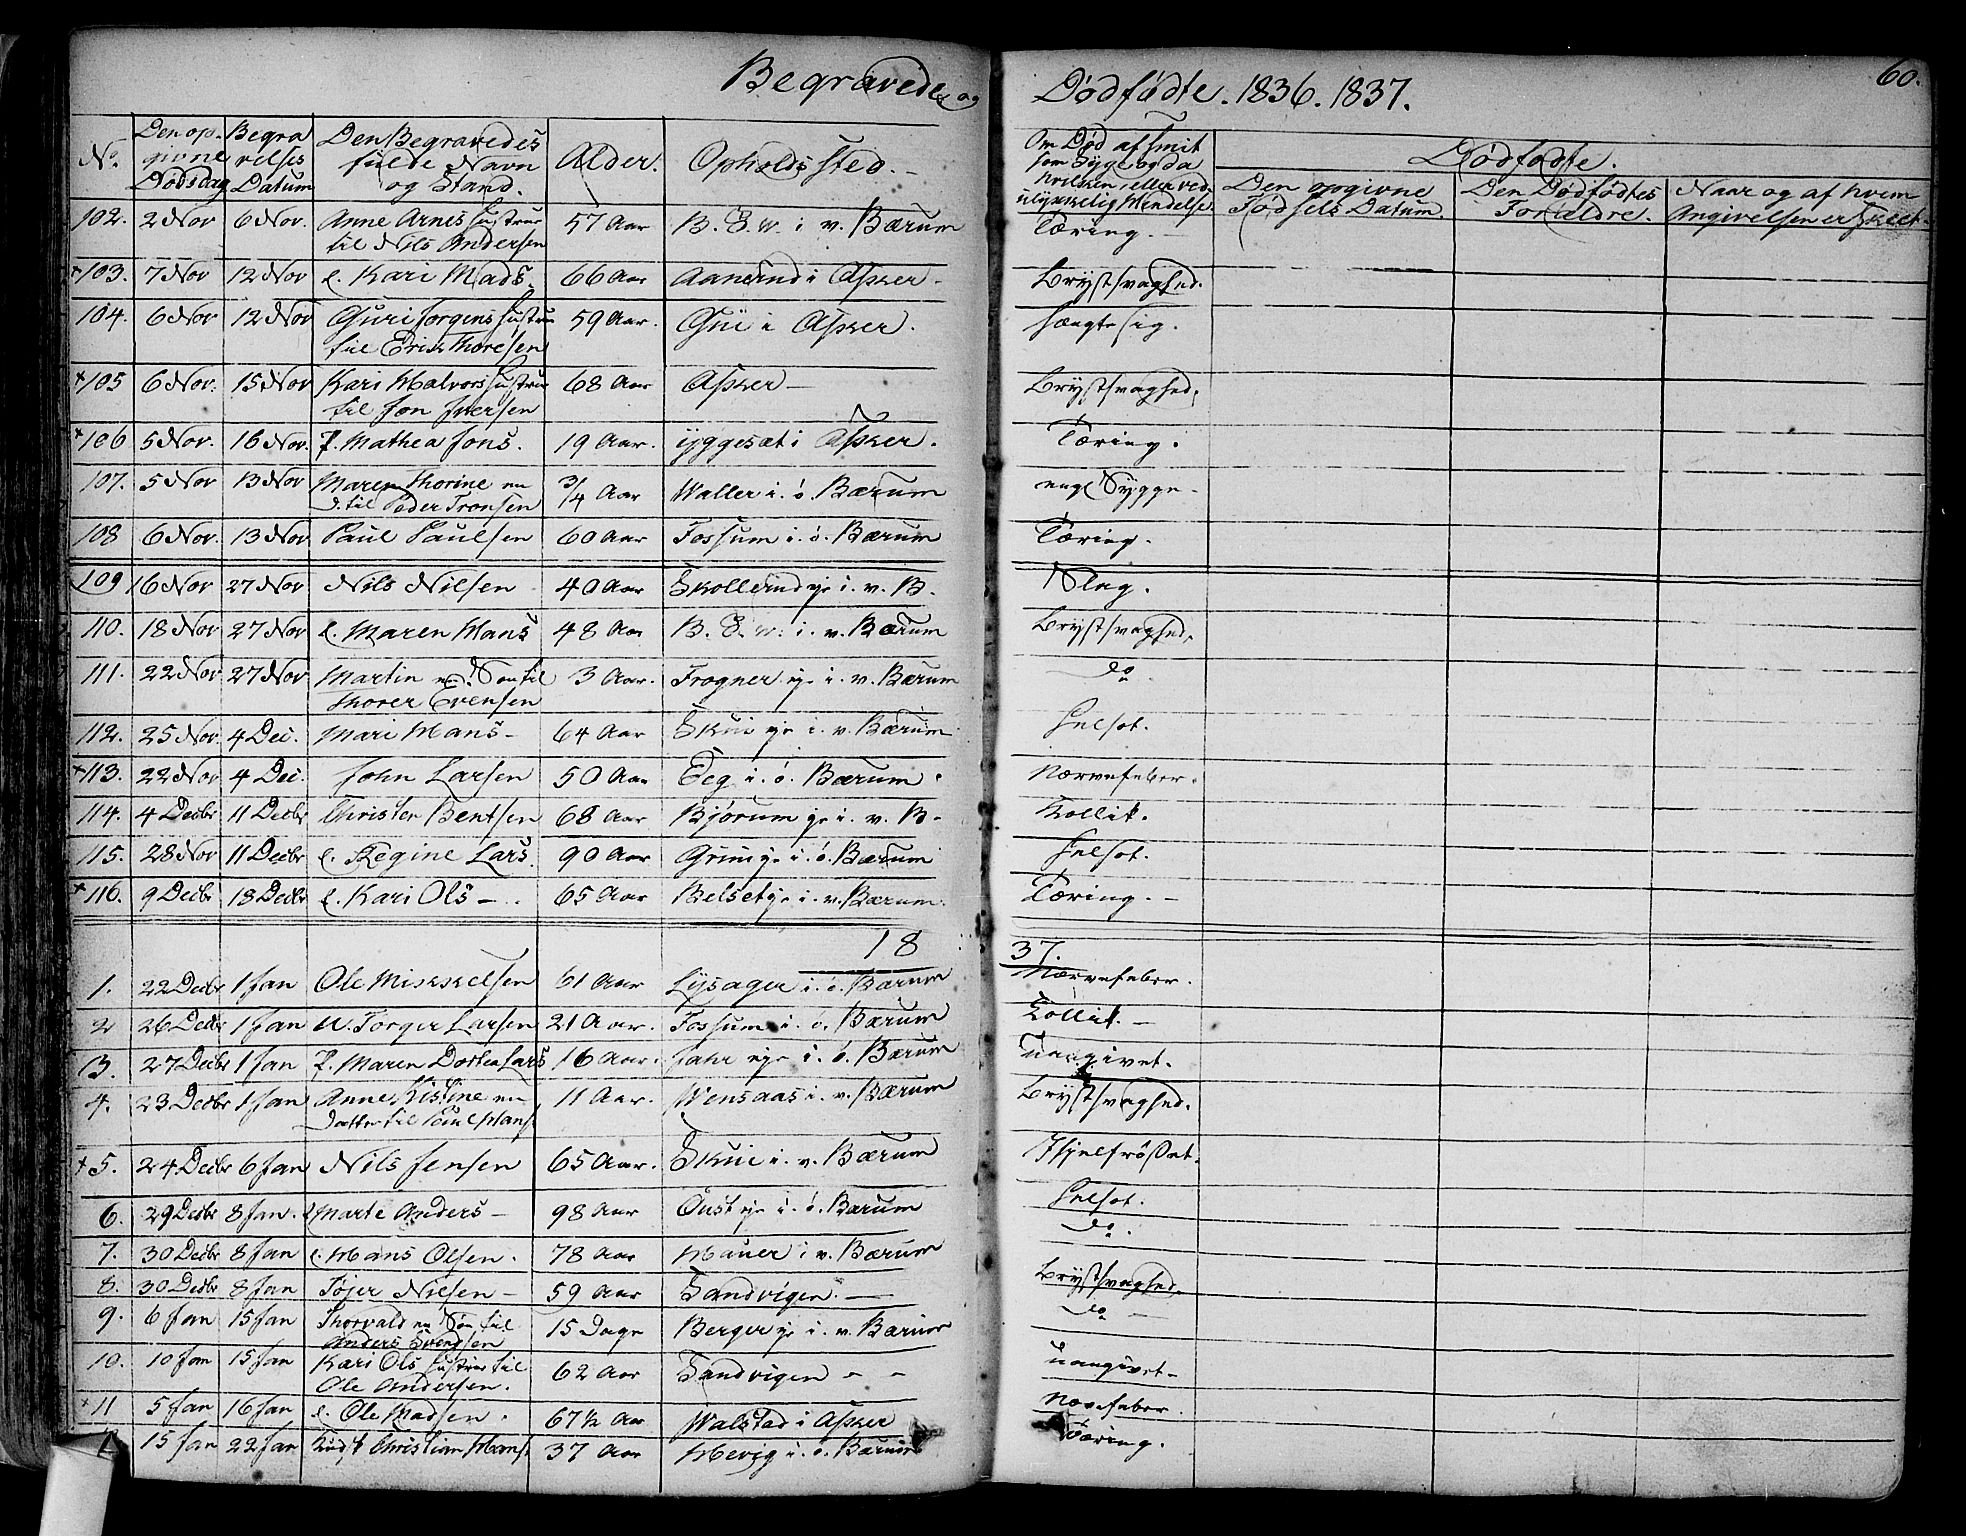 Begravede og Dødfødte. 1836. 1837.
60.
No. Den opgivne Dødsdag Begravelses Datum Den Begravedes fulde Navn og Stand. Alder. Opholds Sted. Om Død af smitsom Syge og da hvilken, eller ved ulykkelig Hendelse. Dødfødte.
Den opgivne Fødsels Datum. Den Dødfødtes Forældre. Naar og af hvem Angivelsen er skeet.
102. 2 Nov 6 Nov. Anne Arnes Hustrue til Nils Andersen 57 Aar B. E. w. i v. Bærum Tæring.
+103. 7 Nov 12 Nov e. Kari Mads. 66 Aar i Asker. Brystsvaghed.
104. 6 Nov 12 Nov Guri Jorgens Hustrue til Erik Thoresen 59 Aar. i Asker. hængte sig.
+105 6 Nov. 15 Nov Kari Halvors Hustrue til Jon Iversen 68 Aar Asker Brystsvaghed.
+106 5 Nov. 16 Nov. P. Mathea Jons. 19 Aar. yggesæt i Asker. Tæring.
107. 5 Nov 13 Nov Maren Thorine en D. til Peder Tronsen 3/4 Aar Haller i. ö. Bærum engl Sygge.
108 6 Nov. 13 Nov Paul Paulsen 60 Aar Fossum i. ö. Bærum Tæring.
109 16 Nov 27 Nov Nils Nilsen 40 Aar Skollerud ye i. v. B. Slag.
110. 18 Nov 27 Nov e. Maren Hans 48 Aar B. E. w. i. v. Bærum Brystsvaghed.
111. 22 Nov 27 Nov Martin en Søn til Thorer Evensen 3 Aar. Frogner eye i. v. Bærum do
112. 25 Nov. 4 Dec. Mari Hans 64 Aar Skui eye i. v. Bærum Helsot.
+113. 22 Nov 4 Dec. John Larsen 50 Aar Teg i. ö. Bærum. Nervefeber.
114. 4 Decbr 11 Decbr Christen Bentsen 68 Aar Bjørum ye i. v. B. Kollik.
115. 28 Nov 11 Decbr e. Regine Lars. 90 Aar Grini ye i. ö. Bærum Helsot.
+116. 9 Decbr 18 Decbr e. Kari Ols 65 Aar Belset ye i. v. Bærum. Tæring.
1837.
1. 22 Decbr 1 Jan Ole Mikkelsen 61 Aar Lysager i. ö. Bærum Nervefeber.
2 26 Decbr 1 Jan U. Torger Larsen 21 Aar. Fossum i. ö. Bærum Kollik.
3. 27 Decbr 1 Jan P. Maren Dorthea Lars 16 Aar. Jahr eye i. ö. Bærum uangivet.
4. 23 Decbr 1 Jan Anne Kistine en Datter til Poul Hans. 11 Aar. Wensaas i. v. Bærum Brystsvaghed.
+5. 24 Decbr 6 Jan Nils Jensen 65 Aar. Skui i. v. Bærum Ihjelfrösset.
6. 29 Decbr 8 Jan. e Marte Anders 98 Aar Oust eye i. ö. Bærum Helsot.
7. 30 Decbr 8 Jan e. Hans Olsen. 78 Aar Hauer i v. Bærum do.
8. 30 Decbr 8 Jan Töjer Nilsen 59 Aar Sandvigen. Brystsvaghed.
9. 6 Jan 15 Jan Thorvald en Søn til Anders Svendsen 15 Dage Berger ye i. v. Bærum do
10. 10 Jan 15 Jan Kari Ols Hustrue til Ole Andersen. 62 Aar Sandvigen uangivet
+11 5 Jan 16 Jan e. Ole Madsen. 67 1/2 Aar Walstad i Asker Nervefeber.
15 Jan 22 Jan Christian Hans. 37 Aar Høvig i. ö. Bærum Tæring.